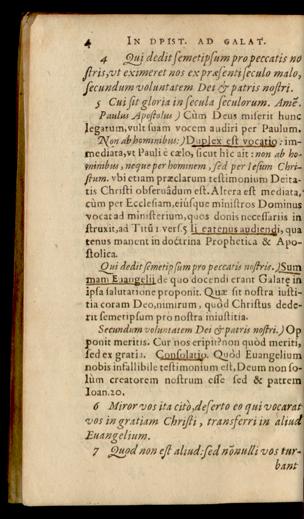 4 IN DPIST. AD GALAT.
4 Qui dedit semetipsum pro peccatis no
stris, vt eximeret nos ex præsenti seculo malo,
secundum voluntatem Dei & patris nostri.
5 Cui sit gloria in secula seculorum. Amē.
Paulus Apostolus) Cùm Deus miserit hunc
legatum, vult suam vocem audiri per Paulum.
Non ab hominibus:) Duplex est vocatio: im-
mediata, vt Pauli è cælo, sicut hîc ait: non ab ho-
minibus, neque per hominem, sed per Iesum Chri-
stum. vbi etiam præclarum testimonium Deita-
tis Christi obseruādum est. Altera est mediata,
cùm per Ecclesiam, eiúsque ministros Dominus
vocat ad ministerium, quos donis necessariis in
struxit, ad Titū 1 vers. 5 Ii eatenus audiendi, qua
tenus manent in doctrina Prophetica & Apo-
stolica.
Qui dedit semetipsum pro peccatis nostris.) Sum
mam Euangelii de quo docendi erant Galatę in
ipsa salutatione proponit. Quæ sit nostra iusti-
tia coram Deo, nimirum, quòd Christus dede-
rit semetipsum pro nostra iniustitia.
Secundum voluntatem Dei & patris nostri.) Op
ponit meritis. Cur nos eripit? non quòd meriti,
sed ex gratia. Consolatio. Quòd Euangelium
nobis infallibile testimonium est, Deum non so-
lùm creatorem nostrum esse sed & patrem
Ioan. 20.
6 Miror vos ita citò, deserto eo qui vocarat
vos in gratiam Christi, transferri in aliud
Euangelium.
7 Quod non est aliud: sed nōnulli vos tur-
bant